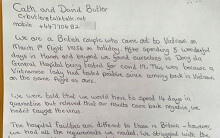 Cath and David Butler
crbutler@talktalk.net
mobile +44770482
We are a British couple who came out to Vietnam on
March 1st flight VN54 on holiday. After spending 5 wonderful
days in Hanoi and beyond we found ourselves in Dong da
General hospital being tested for covid 19. This was because a
Vietnamese lady had tested positive since arriving back in Vietnam
on the same flight.
We were told that we would have to spend 14 days in
quarantine but relieved that our results came back negative we
hadn't caught the virus.
The hospital facilities are different to those in Britain - however,
we had all the requirements we needed. We struggled with the